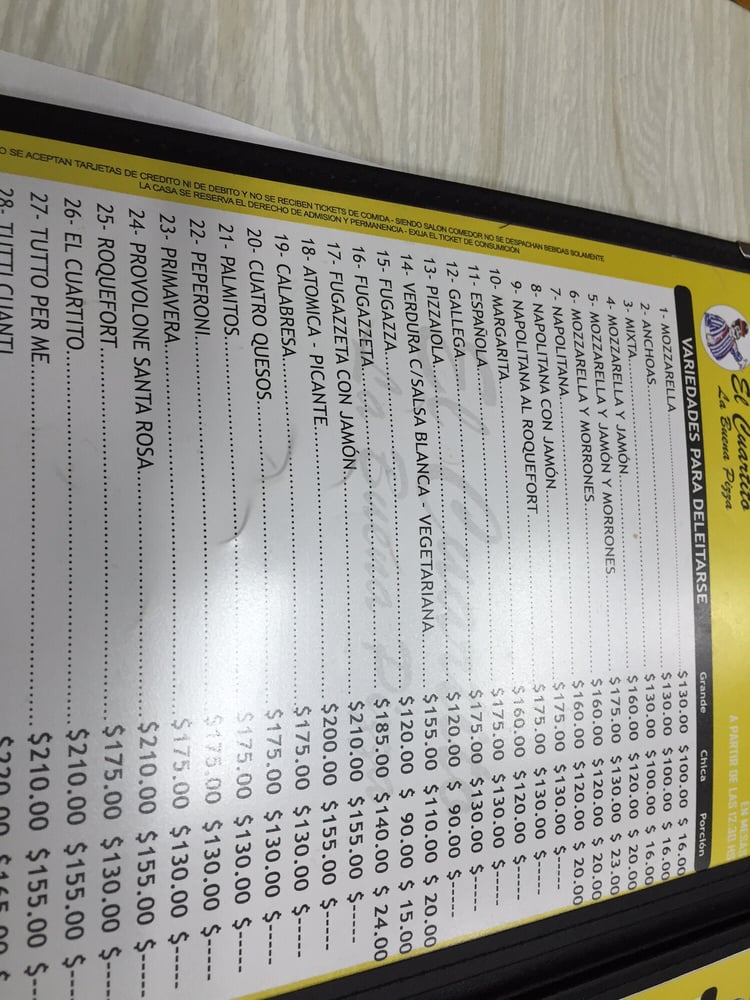 El Cuartito
La Buena Pizza
EN MESAS
A PARTIR DE LAS 12:30 HS
VARIEDADES PARA DELEITARSE Grande Chica Porción
1- MOZZARELLA $130.00 $100.00 $ 16.00
2- ANCHOAS $130.00 $100.00 $ 16.00
3- MIXTA $130.00 $100.00 $ 16.00
4- MOZZARELLA Y JAMÓN $160.00 $120.00 $ 20.00
5- MOZZARELLA Y JAMÓN Y MORRONES $175.00 $130.00 $ 23.00
6- MOZZARELLA Y MORRONES $160.00 $120.00 $ 20.00
7- NAPOLITANA $160.00 $120.00 $ 20.00
8- NAPOLITANA CON JAMÓN $175.00 $130.00 $-----
9- NAPOLITANA AL ROQUEFORT $175.00 $130.00 $-----
10- MARGARITA $160.00 $120.00 $-----
11- ESPAÑOLA $175.00 $130.00 $-----
12- GALLEGA $175.00 $130.00 $-----
13- PIZZAIOLA $120.00 $ 90.00 $-----
14- VERDURA C/SALSA BLANCA - VEGETARIANA $155.00 $110.00 $ 20.00
15- FUGAZZA $120.00 $ 90.00 $ 15.00
16- FUGAZZETA $185.00 $140.00 $ 24.00
17- FUGAZZETA CON JAMÓN $210.00 $155.00 $-----
18- ATOMICA - PICANTE $200.00 $155.00 $-----
19- CALABRESA $175.00 $130.00 $-----
20- CUATRO QUESOS $175.00 $130.00 $-----
21- PALMITOS $175.00 $130.00 $-----
22- PEPERONI $175.00 $130.00 $-----
23- PRIMAVERA $175.00 $130.00 $-----
24- PROVOLONE SANTA ROSA $210.00 $155.00 $-----
25- ROQUEFORT $175.00 $130.00 $-----
26- EL CUARTITO $210.00 $155.00 $-----
27- TUTTO PER ME $210.00 $155.00 $-----
28- TUTTI CUANTI $220.00 $165.00 $
El Cuartito
La Buena Pizza
O SE ACEPTAN TARJETAS DE CREDITO NI DE DEBITO Y NO SE RECIBEN TICKETS DE COMIDA - SIENDO SALON COMEDOR NO SE DESPACHAN BEBIDAS SOLAMENTE
LA CASA SE RESERVA EL DERECHO DE ADMISION Y PERMANENCIA - EXIJA EL TICKET DE CONSUMICIÓN